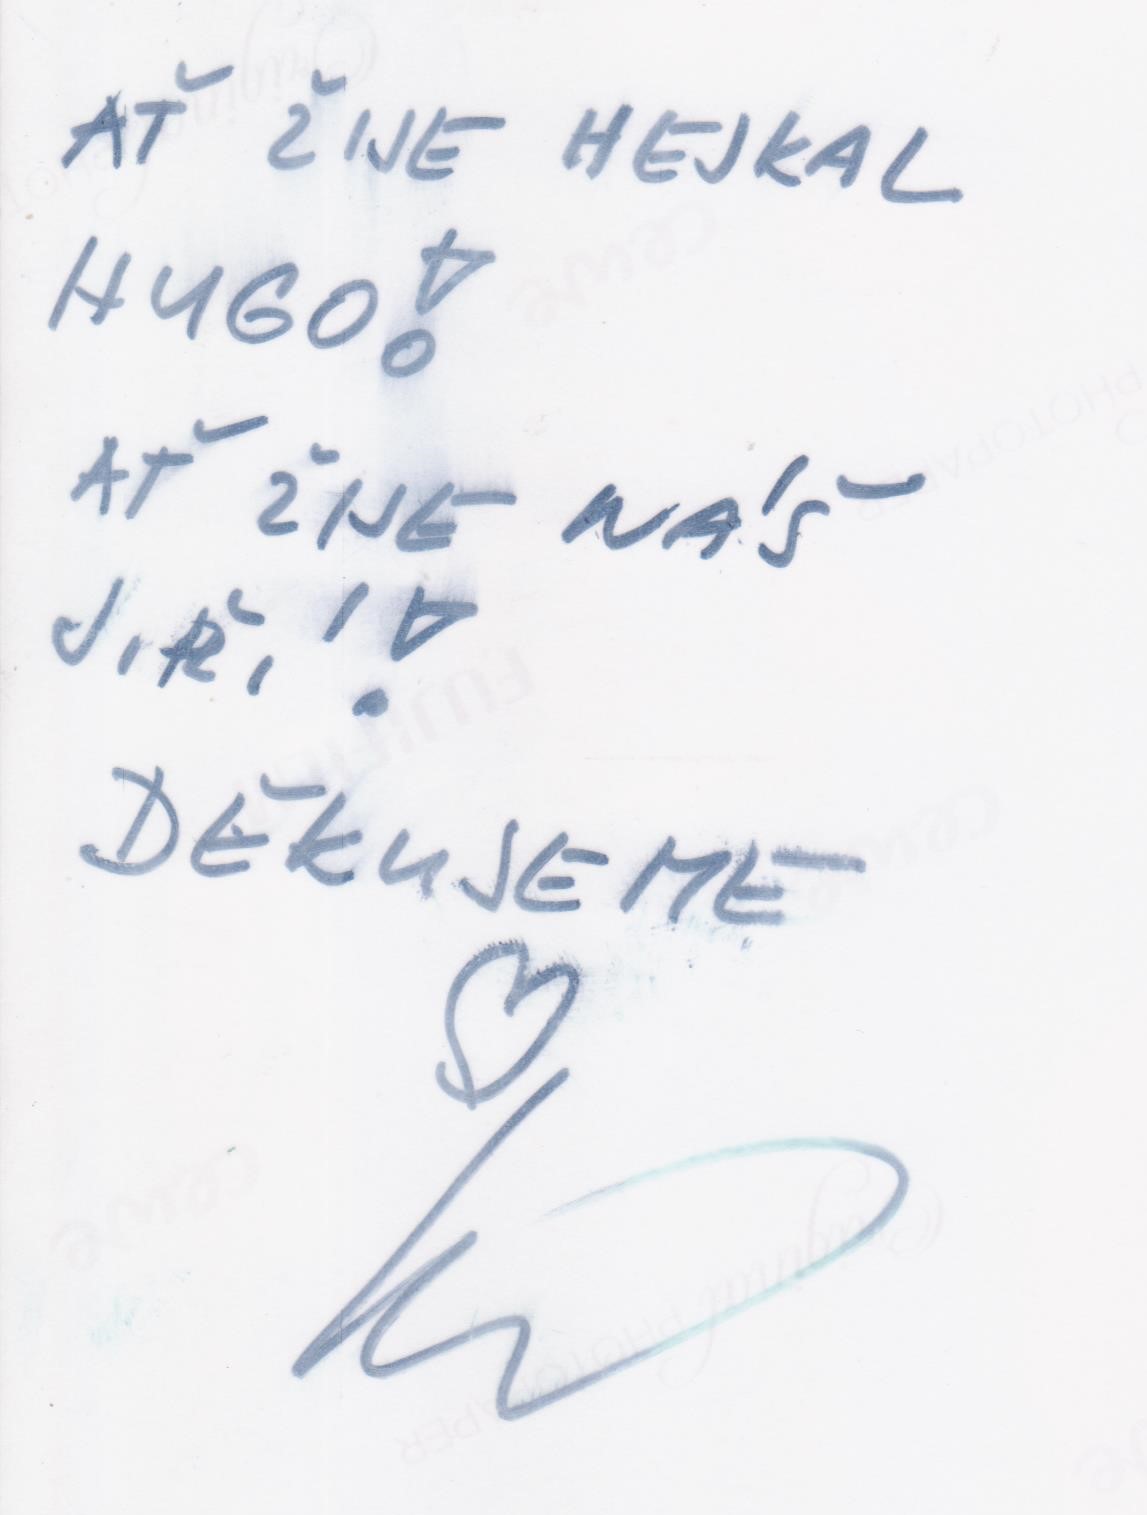 AŤ ŽIJE HEJKAL
HUGO!
AŤ ŽIJE NÁŠ
JIŘÍ!
DĚKUJEME